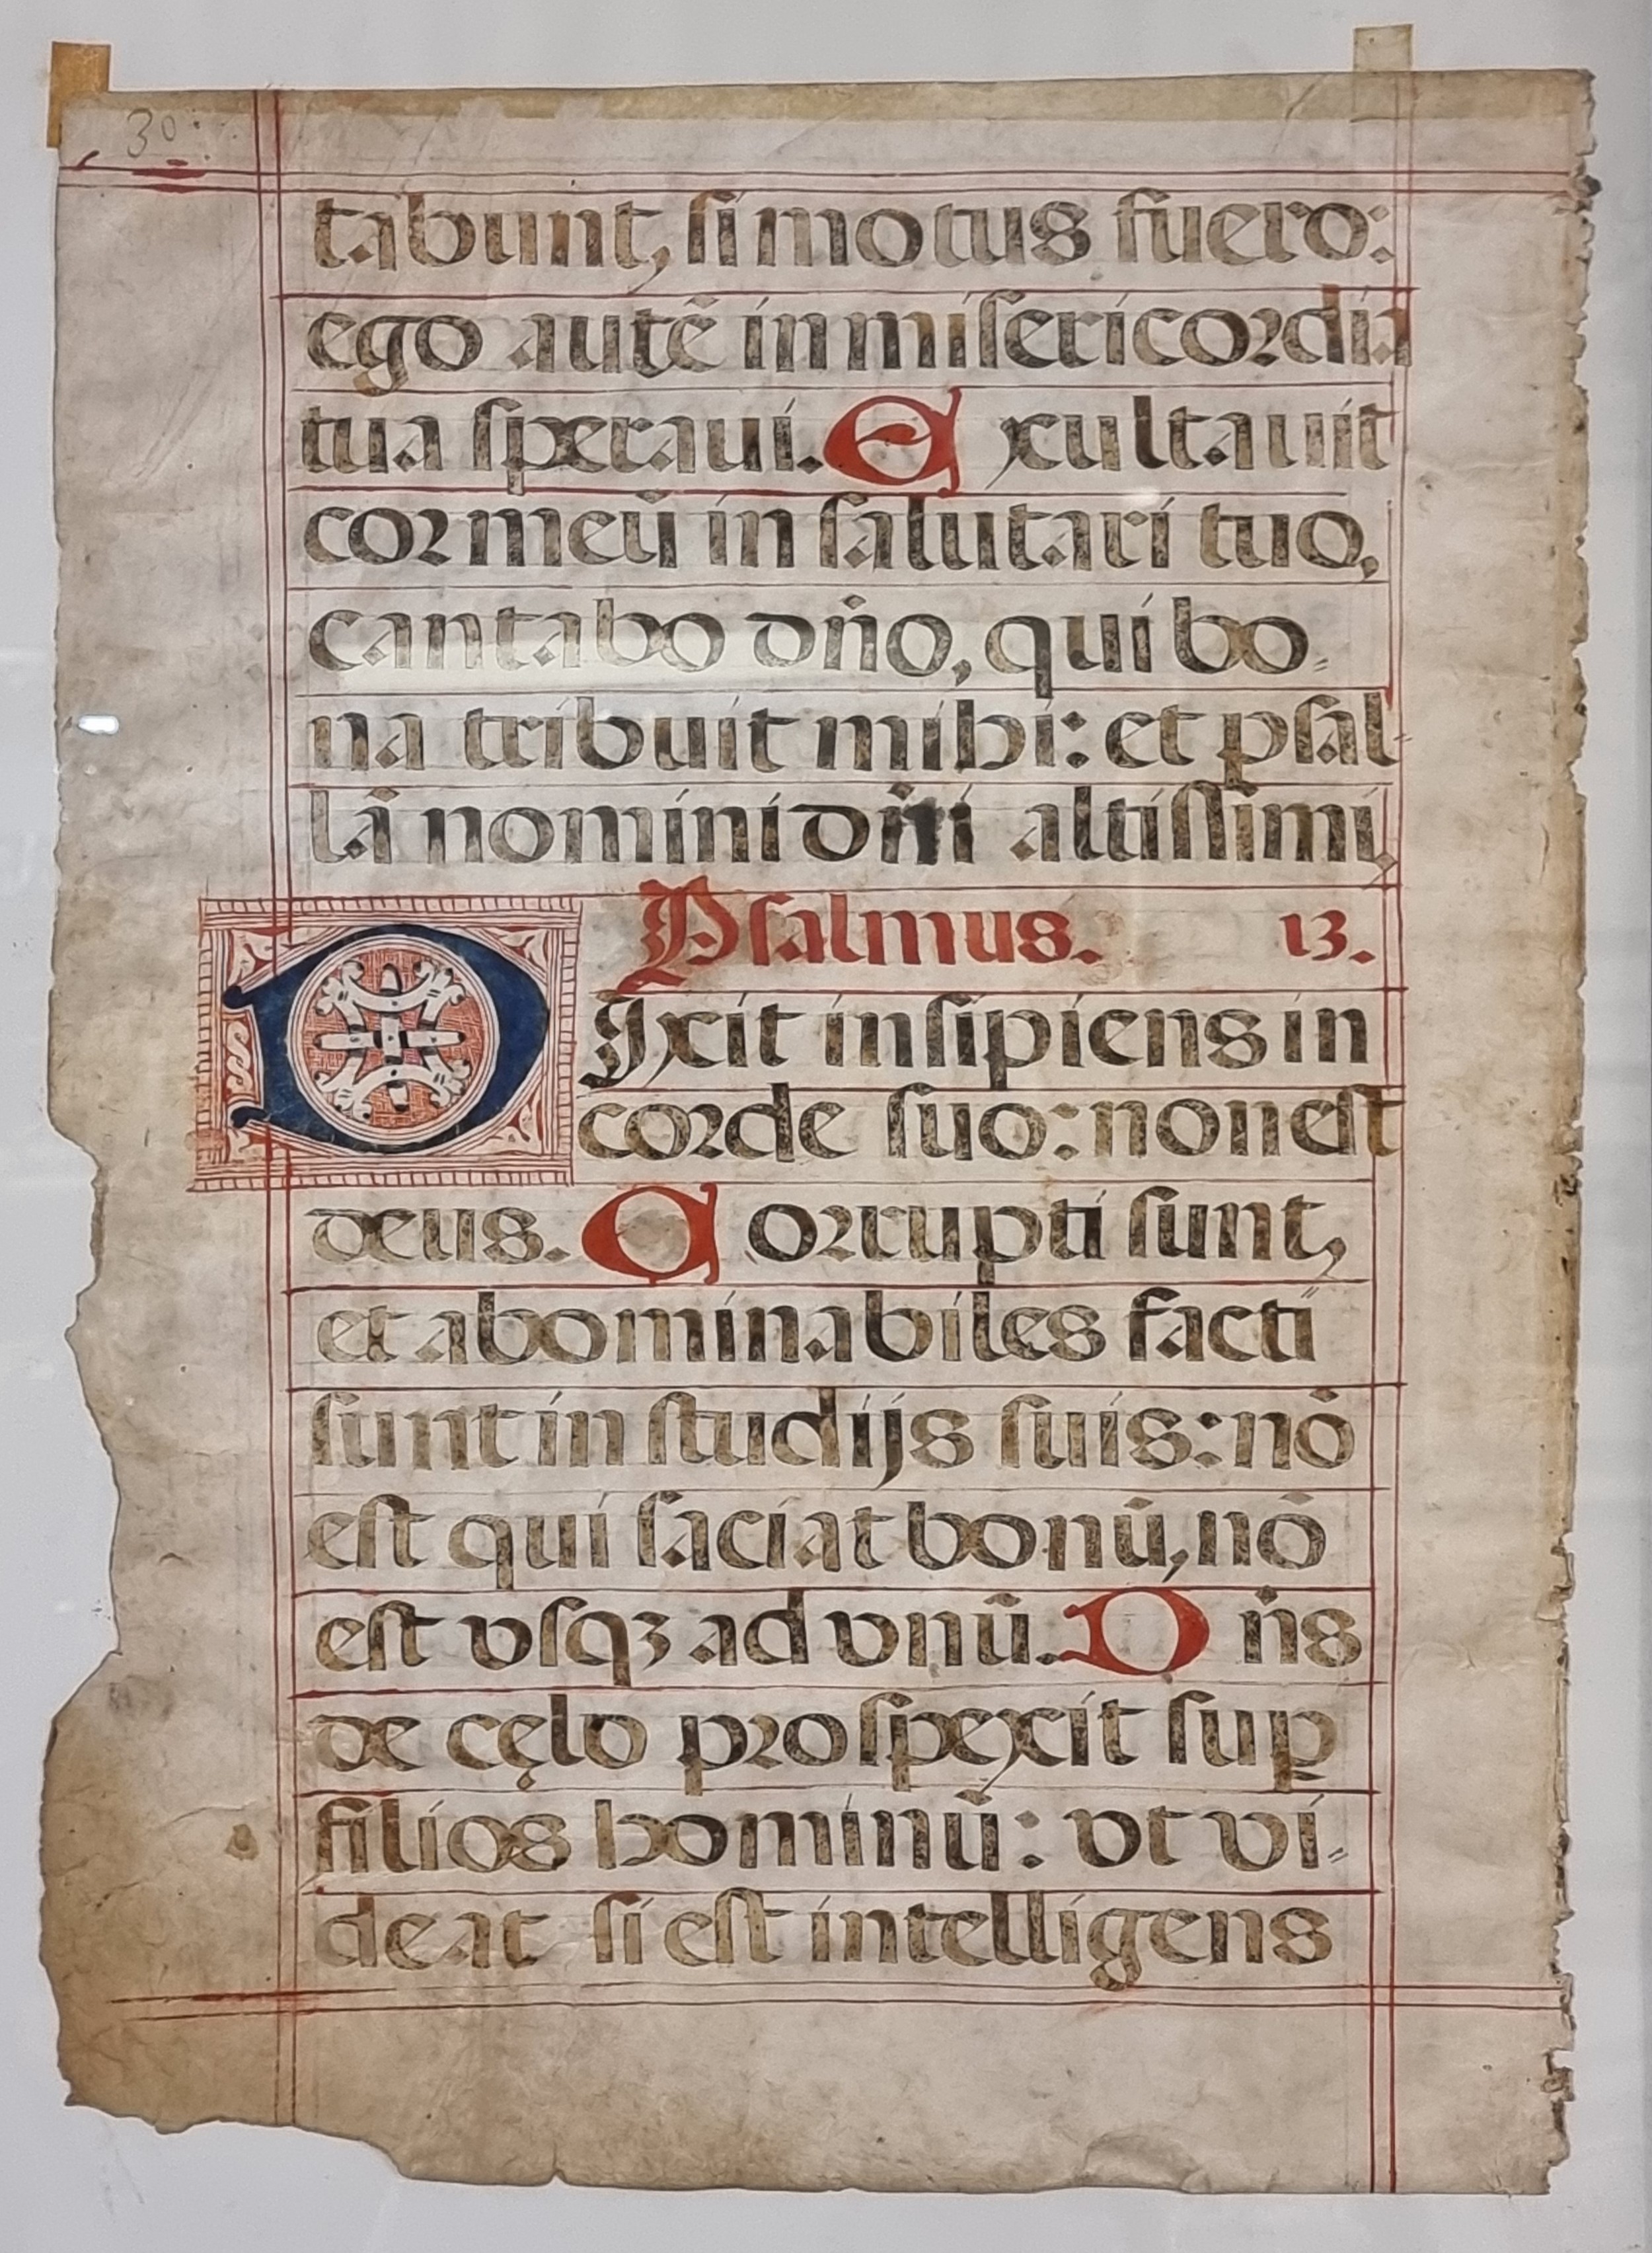 30
tabunt, si motus fuero:
ego autē in misericordia
tua speraui. Exultauit
cor meū in salutari tuo,
cantabo dn̄o, qui bo=
na tribuit mihi: et psal=
lā nomini dn̄i altissimi,
Psalmus. 13.
DIxit insipiens in
corde suo: non est
deus. Corrupti sunt,
et abominabiles facti
sunt in studijs suis: nō
est qui faciat bonū, nō
est vsqꝫ ad vnū. Dn̄s
de cęlo prospexit suꝑ
filios hominū: vt vi=
deat si est intelligens